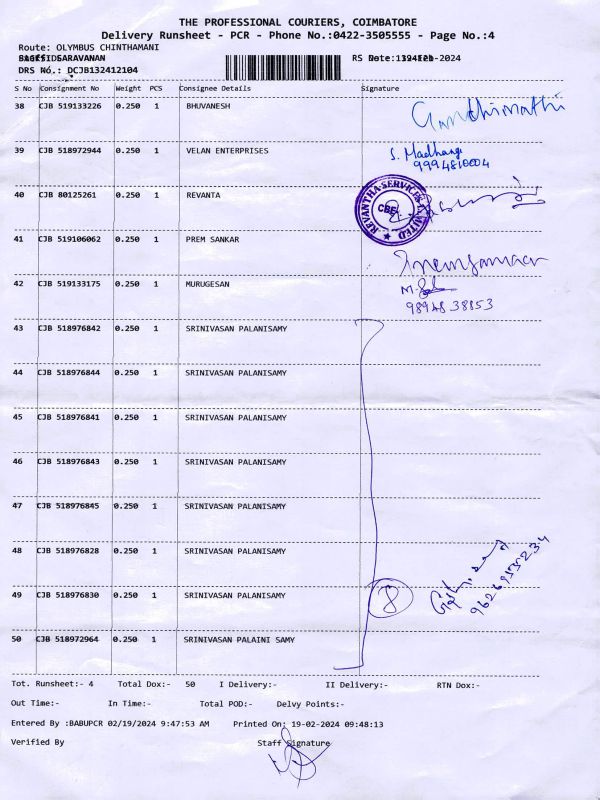 THE PROFESSIONAL COURIERS, COIMBATORE
Delivery Runsheet - PCR - Phone No.:0422-3505555 - Page No.:4
Route: OLYMBUS CHINTHAMANI
SARAVANAN RS -2024
DRS No.: DCJB132412104
S No Consignment No Weight PCS Consignee Details Signature
38 CJB 519133226 0.250 1 BHUVANESH Gandhimathi
39 CJB 518972944 0.250 1 VELAN ENTERPRISES S. Madhangi
9994810004
40 CJB 80125261 0.250 1 REVANTA REVANTHA SERVICES LIMITED CBE
41 CJB 519106062 0.250 1 PREM SANKAR
42 CJB 519133175 0.250 1 MURUGESAN
98948 38853
43 CJB 518976842 0.250 1 SRINIVASAN PALANISAMY
44 CJB 518976844 0.250 1 SRINIVASAN PALANISAMY
45 CJB 518976841 0.250 1 SRINIVASAN PALANISAMY
46 CJB 518976843 0.250 1 SRINIVASAN PALANISAMY
47 CJB 518976845 0.250 1 SRINIVASAN PALANISAMY
48 CJB 518976828 0.250 1 SRINIVASAN PALANISAMY
49 CJB 518976830 0.250 1 SRINIVASAN PALANISAMY 8
50 CJB 518972964 0.250 1 SRINIVASAN PALAINI SAMY
Tot. Runsheet:- 4 Total Dox:- 50 I Delivery:- II Delivery:- RTN Dox:-
Out Time:- In Time:- Total POD:- Delvy Points:-
Entered By :BABUPCR 02/19/2024 9:47:53 AM Printed On: 19-02-2024 09:48:13
Verified By Staff Signature